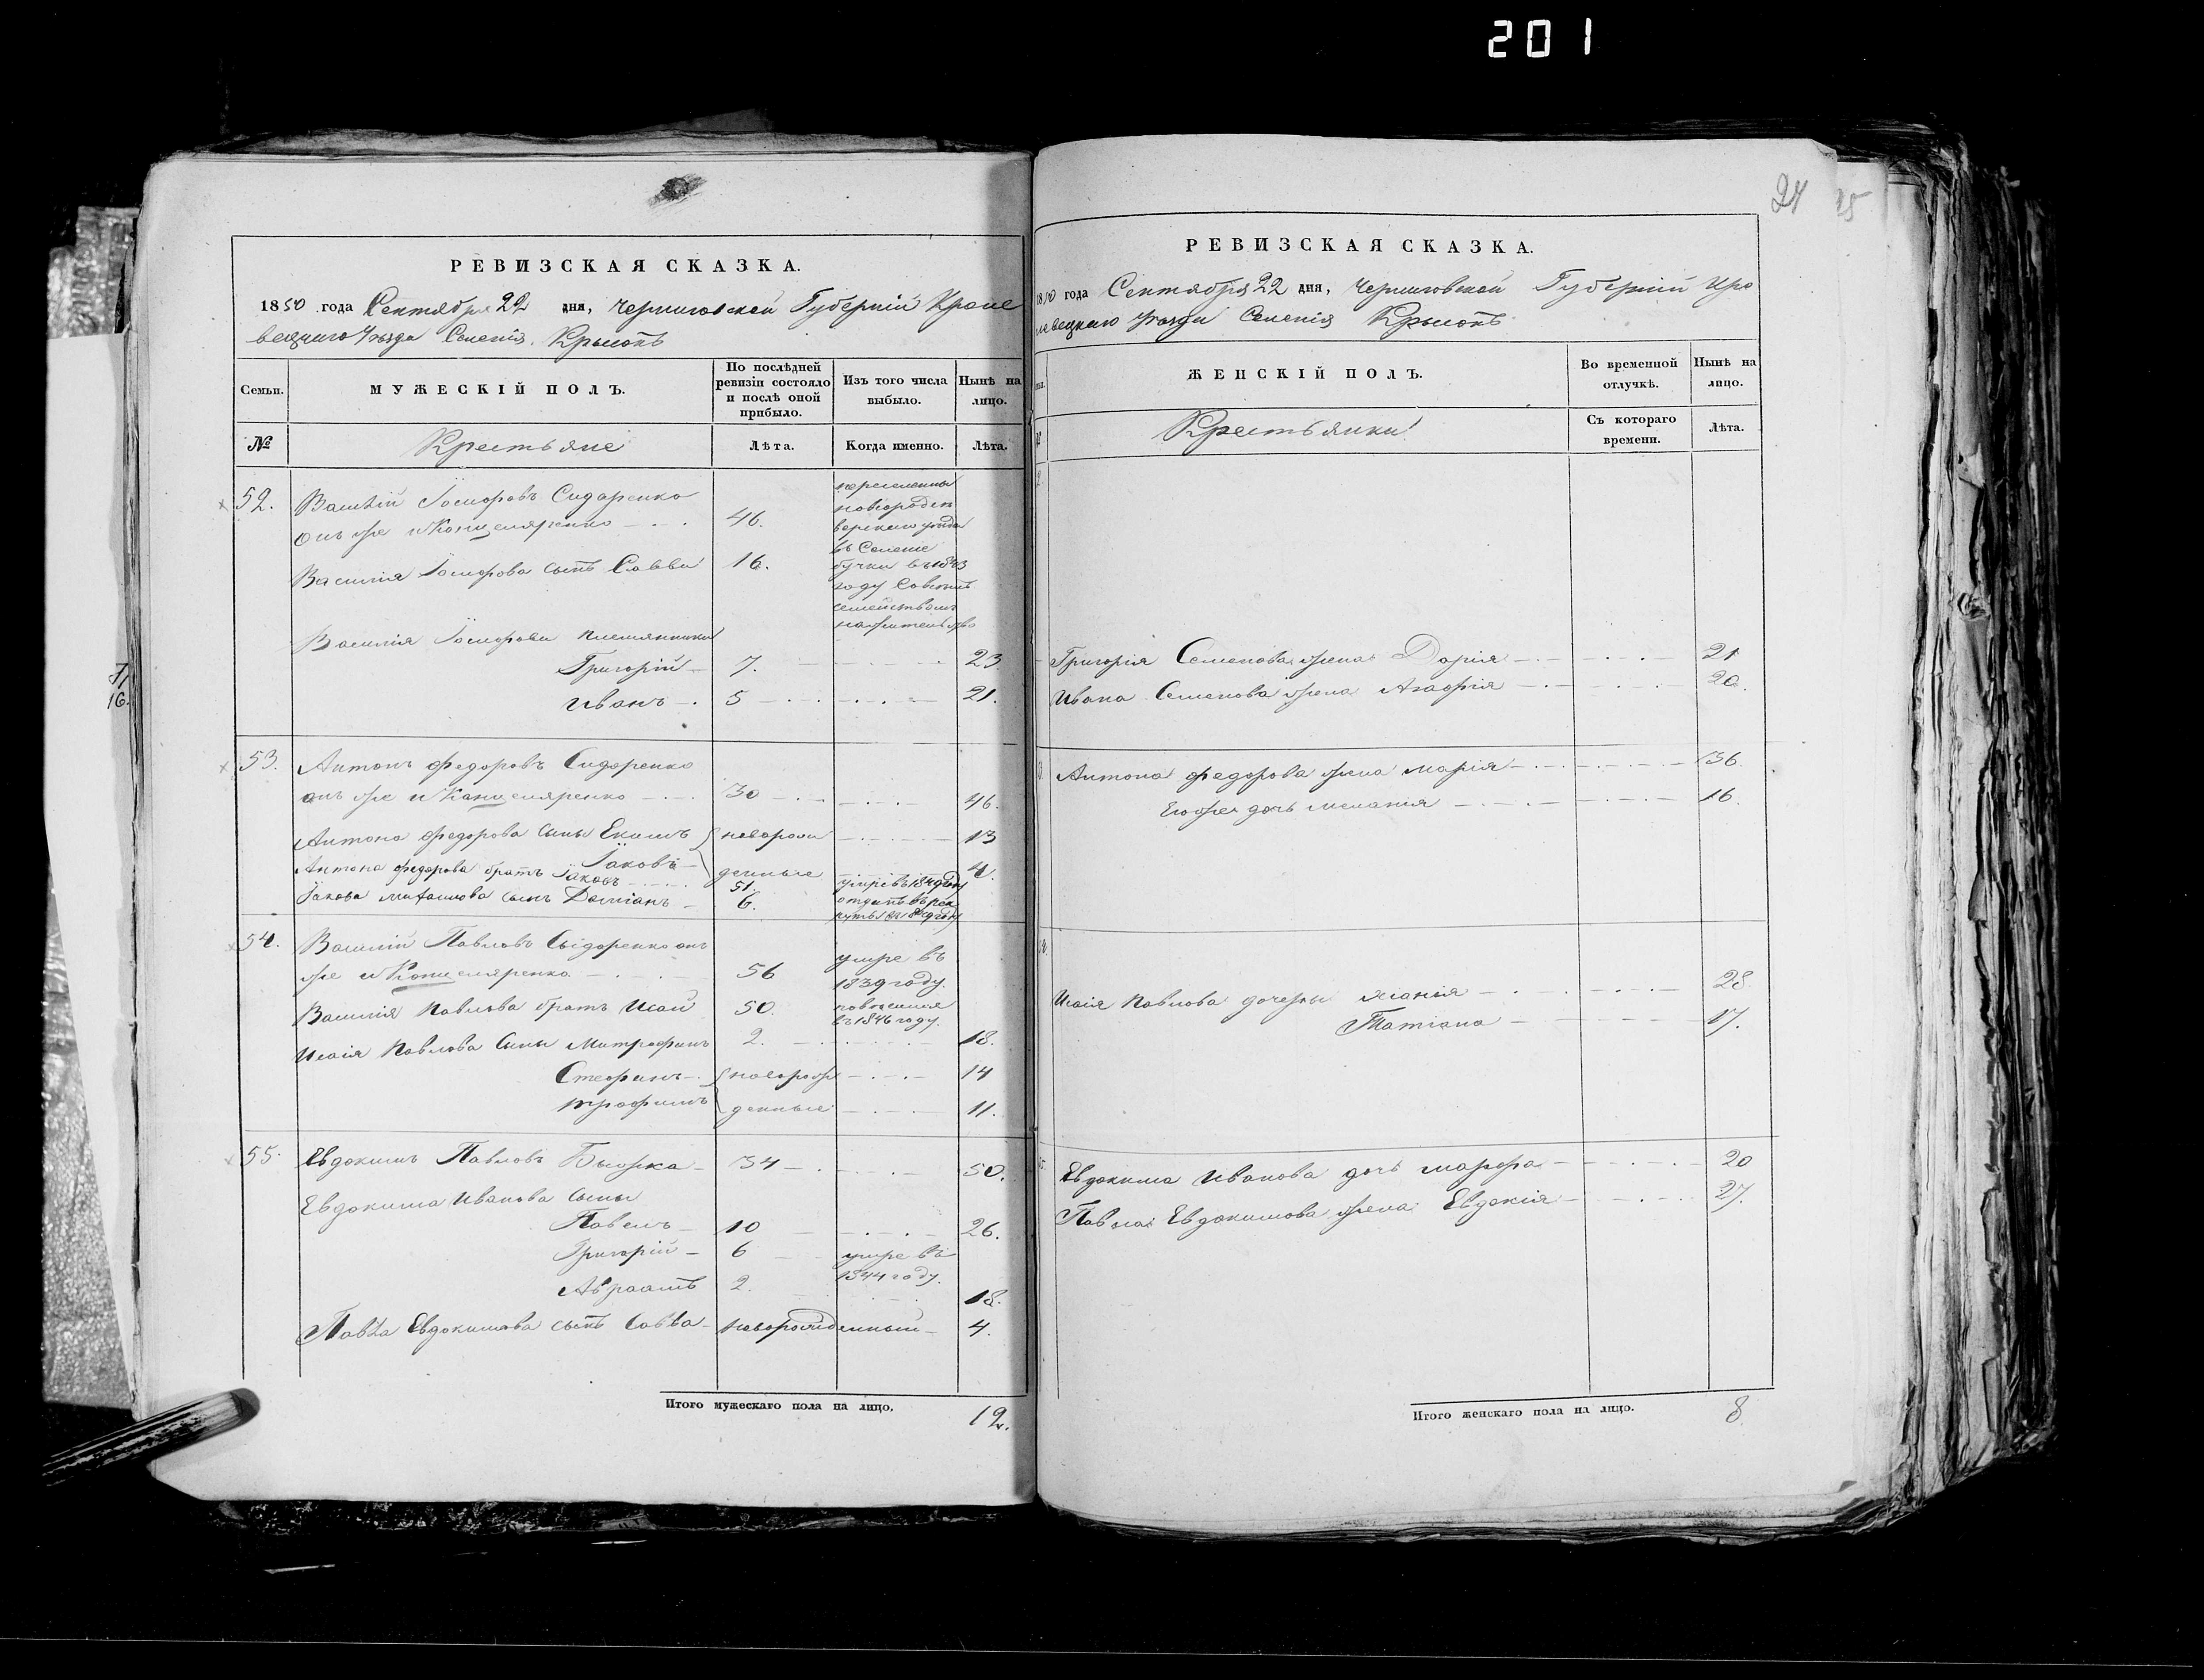 201
24 25
РЕВИЗСКАЯ СКАЗКА.
1850 года Сентября 22 дня, Черниговской Губерніи Кроле
вецкаго Уѣзда Селенія
Семьи.
МУЖЕСКІЙ ПОЛЪ.
По послѣдней ревизіи состояло и послѣ оной прибыло.
Изъ того числа выбыло.
Нынѣ на лицо.
№
Крестьяне
Лѣта.
Когда именно.
Лѣта.
52. Василій Сидаренко
онъ же и 46.
Василія сынъ Савва 16.
въ Селеніе
въ 1843
году
семействомъ
на жительство
Василія племянники
Григорій 7. 23
Иванъ 5 21.
53. Антонъ Федоровъ Сидоренко
онъ же и 30 46.
Антона Федорова сыны Екимъ новорож 13
Іаковъ денные 4.
Антона Федорова братъ Іаковъ 51. умре въ 1849 году
Іакова сынъ Даміанъ 6. отданъ въ рек
руты
54. Василій Павловъ Сидоренко онъ
же и 56 умре въ
1839 году.
Василія Павлова братъ Исай 50.
въ 1846 году.
Исаія Павлова сыны Митрофанъ 2. 18.
Стефанъ новорож 14
Трофимъ денные 11.
55. Евдокимъ Павловъ 34 50.
Евдокима Иванова сыны
Павелъ 10 26.
Григорій 6 умре въ
1844 году.
Авраамъ 2. 18.
Павла Евдокимова сынъ Савва новорожденный 4.
Итого мужескаго пола на лицо. 12.
РЕВИЗСКАЯ СКАЗКА.
1850 года Сентября 22 дня, Черниговской Губерніи Кро
левецкаго Уѣзда Селенія
ЖЕНСКІЙ ПОЛЪ.
Во временной отлучкѣ.
Нынѣ на лицо.
Крестьянки
Съ котораго времени.
Лѣта.
Григорія Семенова жена Дарія 21
Ивана Семенова жена Агафія 20.
Антона Федорова жена Марія 36.
Его же дочь Меланія 16.
Исаія Павлова дочери 28.
Татіана 17.
Евдокима Иванова дочь Марфа 20
Павла Евдокимова жена Евдокія 27.
Итого женскаго пола на лицо. 8.
71
16.